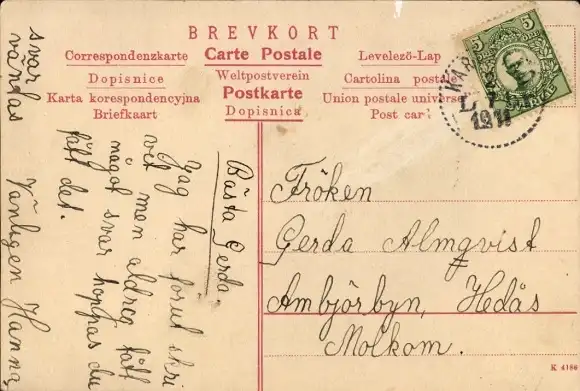 BREVKORT
Correspondenzkarte
Carte Postale
Levelező-Lap
Dopisnice
Weltpostverein
Cartolina postale
Karta korespondencyjna
Postkarte
Union postale univers
Briefkaart
Dopisnica
Post car
5
5
SVERIGE
1911
Bästa Gerda.
Jag har förut skri
vit men aldrig fått
något svar hoppas du
fått det.
Vänligen Hanna
svar
väntas
Fröken
Gerda Almqvist
Ambjörbyn, Hedås
Molkom.
K 4186